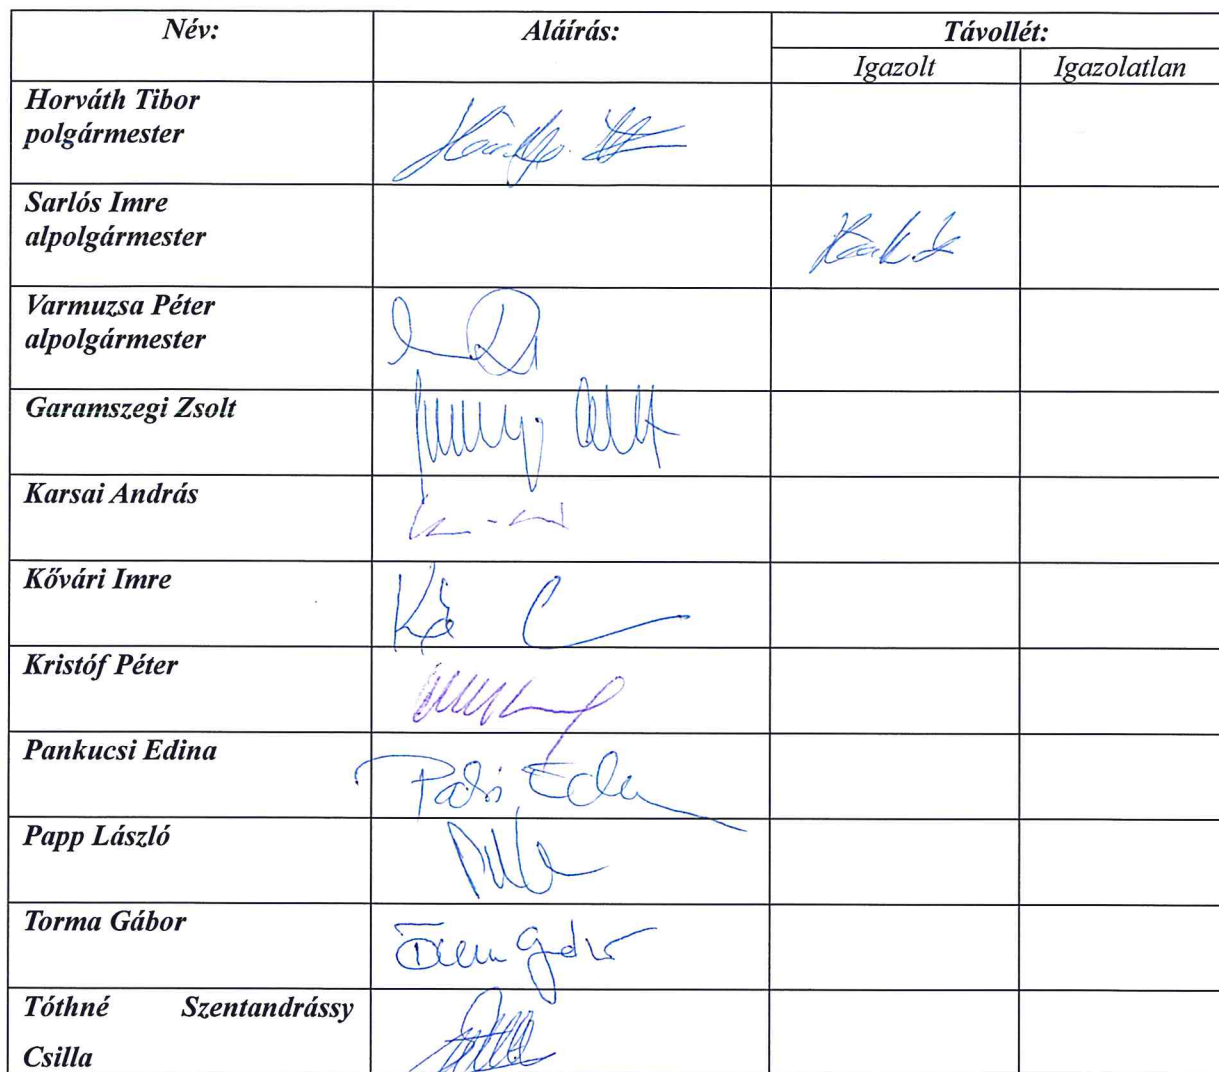 Név: Aláírás: Távollét:
Igazolt Igazolatlan
Horváth Tibor
polgármester
Sarlós Imre
alpolgármester
Varmuzsa Péter
alpolgármester
Garamszegi Zsolt
Karsai András
Kővári Imre
Kristóf Péter
Pankucsi Edina
Papp László
Torma Gábor
Tóthné Szentandrássy
Csilla